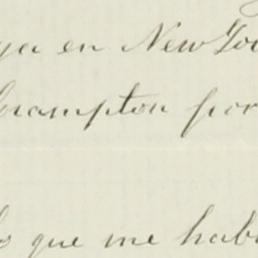 ya en New Yo
Crampton por
que me hab